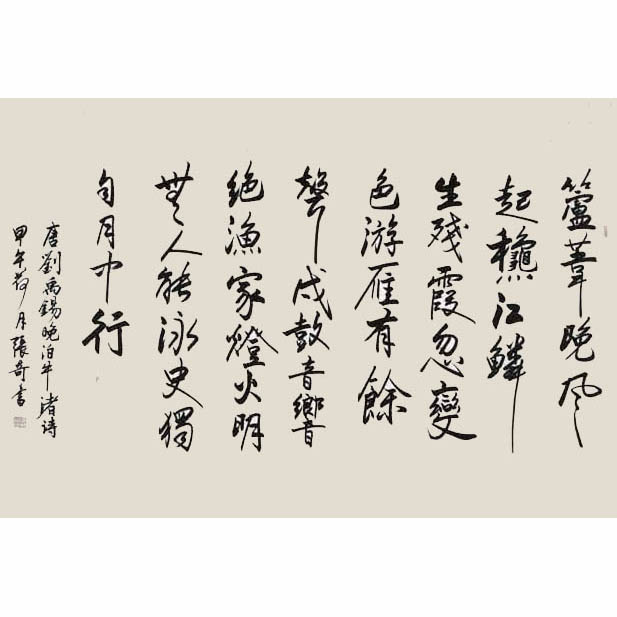 籚葦晚風
起龝江鱗
生殘霞忽變
色游雁有餘
聲戍鼓音響
絶漁家燈火明
無人能詠史獨
自月中行
唐劉禹錫晚泊牛渚诗
甲午荷月張奇書